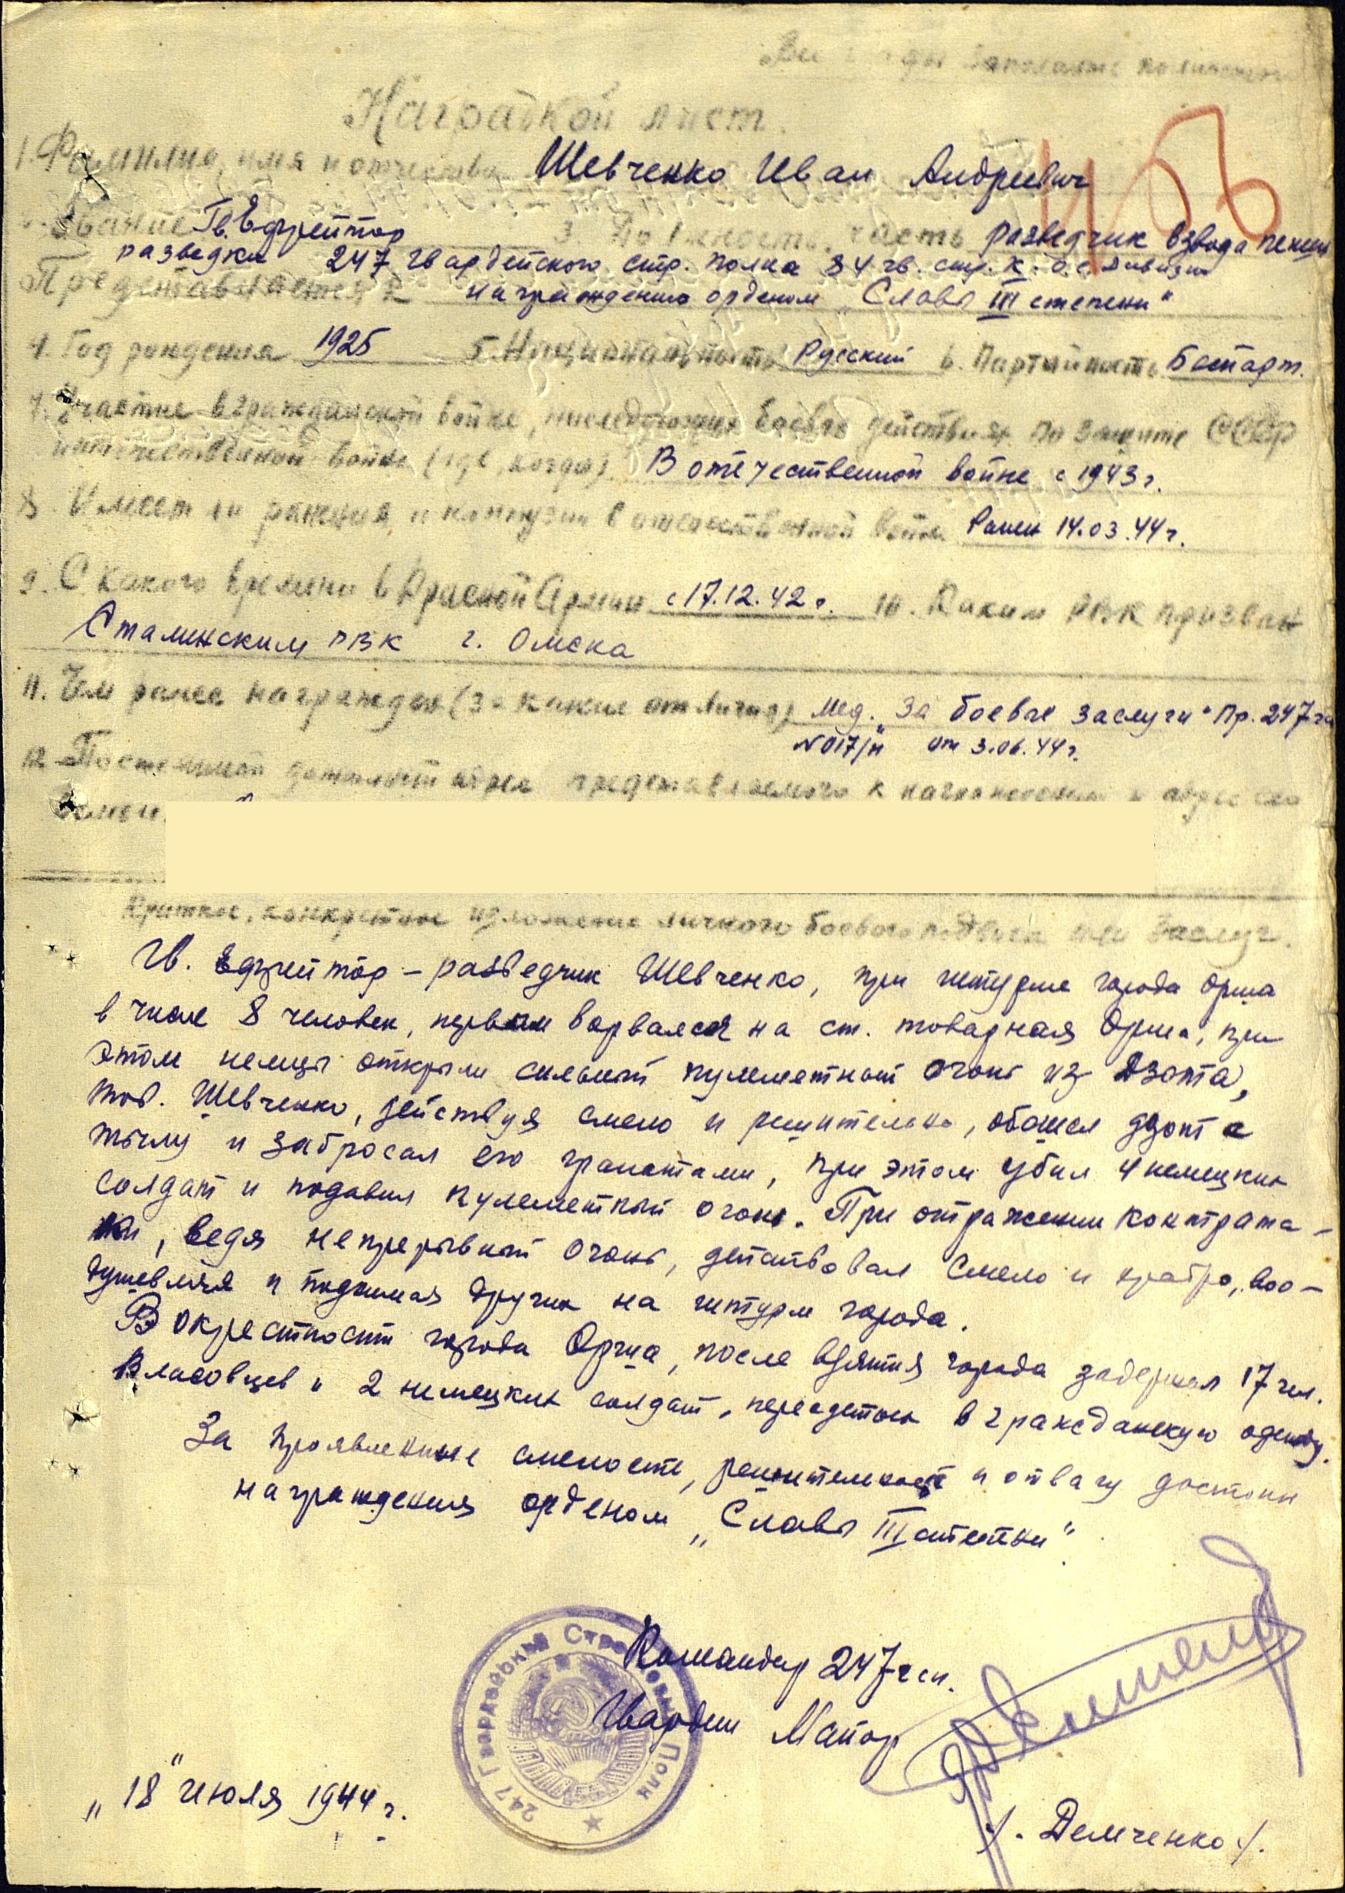 заполнять
Наградной лист.
1. Фамилия, имя и отчество Шевченко Иван Андреевич
Звание Гв. Ефрейтор 3. Должность, часть разведчик взвода пешей
разведки 247 гвардейского стр. полка 84 гв. стр. К. о. с. дивизии
Представляется к награждению орденом „Славы III степени“
4. Год рождения 1925 5. Национальность Русский 6. Партийность Беспарт.
7. Участие в гражданской войне, последующих боевых действиях по защите СССР
и отечественной войне (где, когда) В отечественной войне с 1943 г.
8. Имеет ли ранения и контузии в отечественной войне Ранен 14.03.44 г.
9. С какого времени в Красной Армии с 17.12.42 г. 10. Каким РВК призван
Сталинским РВК г. Омска
11. Чем ранее награжден (за какие отличия) Мед. За боевые заслуги" Пр. 247 гсп
№017/н от 3.06.44 г.
12. Постоянный домашний адрес представляемого к награждению и адрес его
семьи
Краткое, конкретное изложение личного боевого подвига или заслуг.
Гв. Ефрейтор – разведчик Шевченко, при штурме города Орша
в числе 8 человек, первым ворвался на ст. товарная Орша, при
этом немцы открыли сильный пулеметный огонь из Дзота,
тов. Шевченко, действуя смело и решительно, обошел дзот с
тылу и забросал его гранатами, при этом убил 4 немецких
солдат и подавил пулеметный огонь. При отражении контрата-
ки, ведя непрерывный огонь, действовал смело и храбро, воо-
душевляя и поднимая других на штурм города.
В окрестност города Орша, после взятия города задержал 17 чел.
Власовцев и 2 немецких солдат, переодетых в гражданскую одежду.
За проявленные смелость, решительность и отвагу достоин
награждения орденом „Славы III степени“
Командир 247 гсп.
Гвардии Майор
247 Гвардейский Стрелковый Полк
„18“ июля 1944 г.
/. Демченко /.